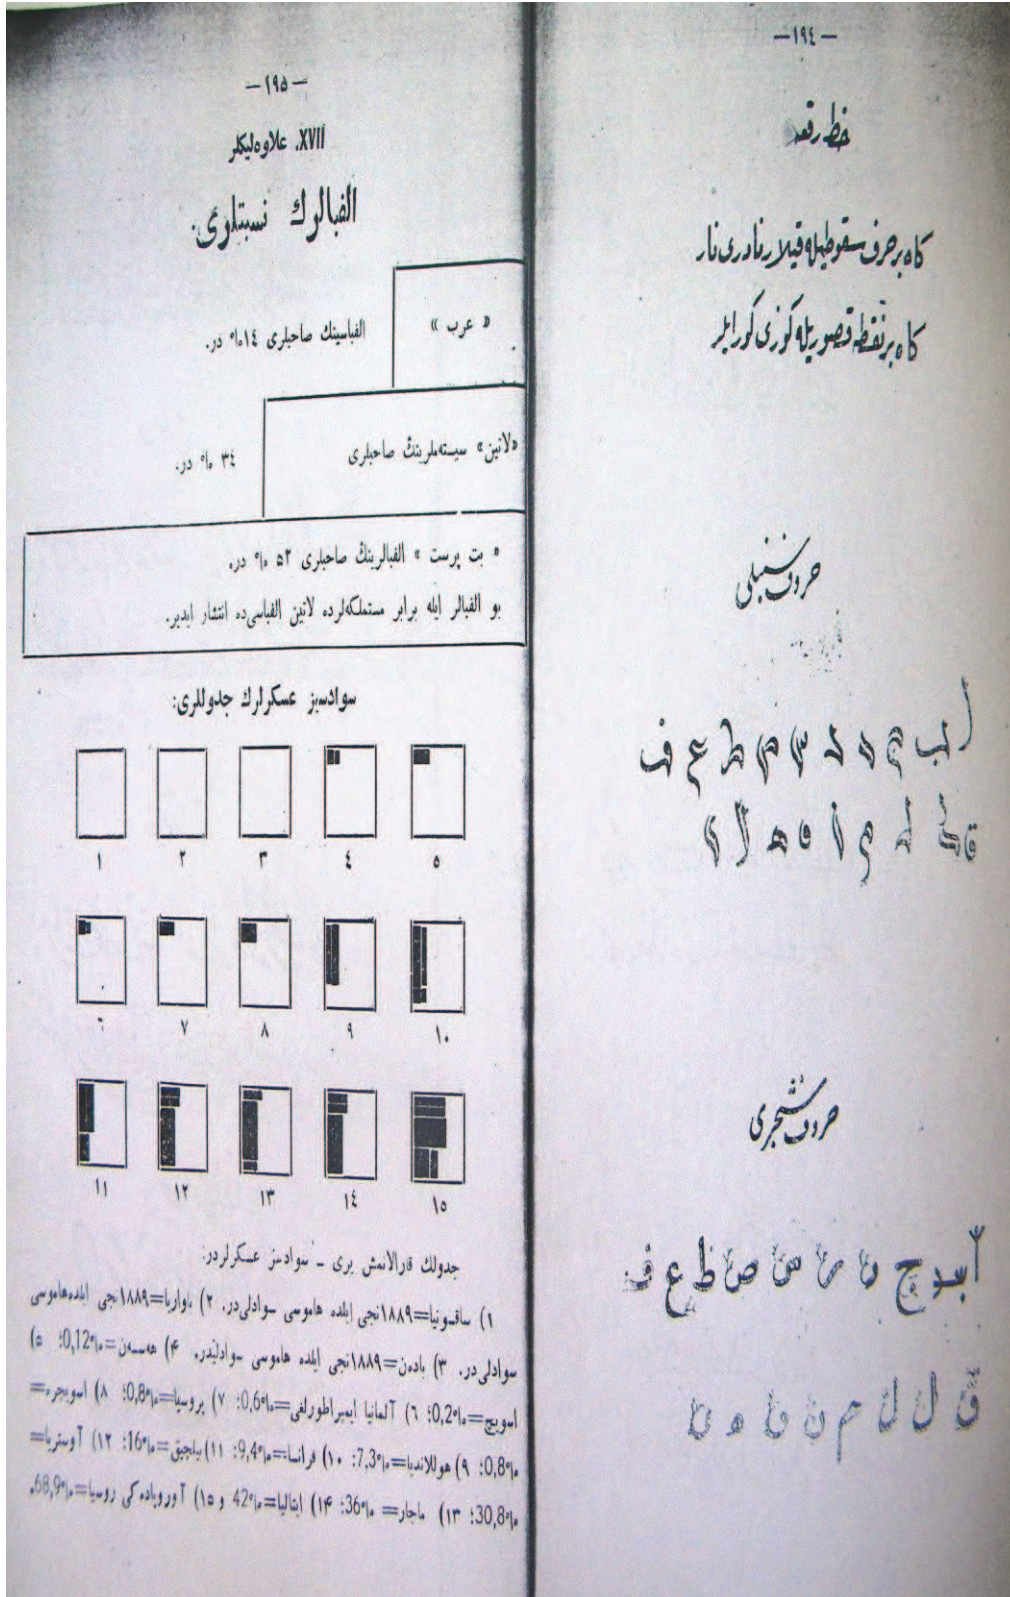 —١٩٤—
خط رقعه
كاه بر حرف سقوطيله قيلار نادری نار
كاه بر نقطه قصوريله كوزی كور ايلر
حروف سنبلی
حروف شجری
—١٩٥—
XVII. علاوه‌ليكلر
الفبالرك نسبتلری.
« عرب » الفباسينك صاحبلری ١٤% در.
«لاتين» سيسته‌ملرينڭ صاحبلری ٣٤ % در.
« بت پرست » الفبالرينڭ صاحبلری ٥٢ % در.
بو الفبالر ايله برابر مستملكه‌لرده لاتين الفباسی‌ده انتشار ايدير.
سوادسيز عسكرلرك جدوللری:
١ ٢ ٣ ٤ ٥
٦ ٧ ٨ ٩ ١٠
١١ ١٢ ١٣ ١٤ ١٥
جدولك قارالانمش يری ـ سوادسز عسكرلردر:
١) ساقسونيا=١٨٨٩نجی ايلده هاموسی سوادلی‌در. ٢) باواريا=١٨٨٩نجی ايلده‌هاموسی
سوادلی‌در. ٣) باده‌ن=١٨٨٩نجی ايلده هاموسی سوادليدر. ۴) هه‌سسه‌ن=%0,12؛ ٥)
اسويچ=%0,2؛ ٦) آلمانيا ايمپراطورلغی=%0,6؛ ٧) پروسيا=%0,8؛ ٨) اسويچره=
%0,8؛ ٩) هوللانديا=%7,3؛ ١٠) فرانسا=%9,4؛ ١١) بيلجيق=%16؛ ١٢) آوستريا=
%30,8؛ ١٣) ماجار= %36؛ ١۴) ايتاليا=%42 و ١٥) آوروپاده‌كی روسيا=%68,9.